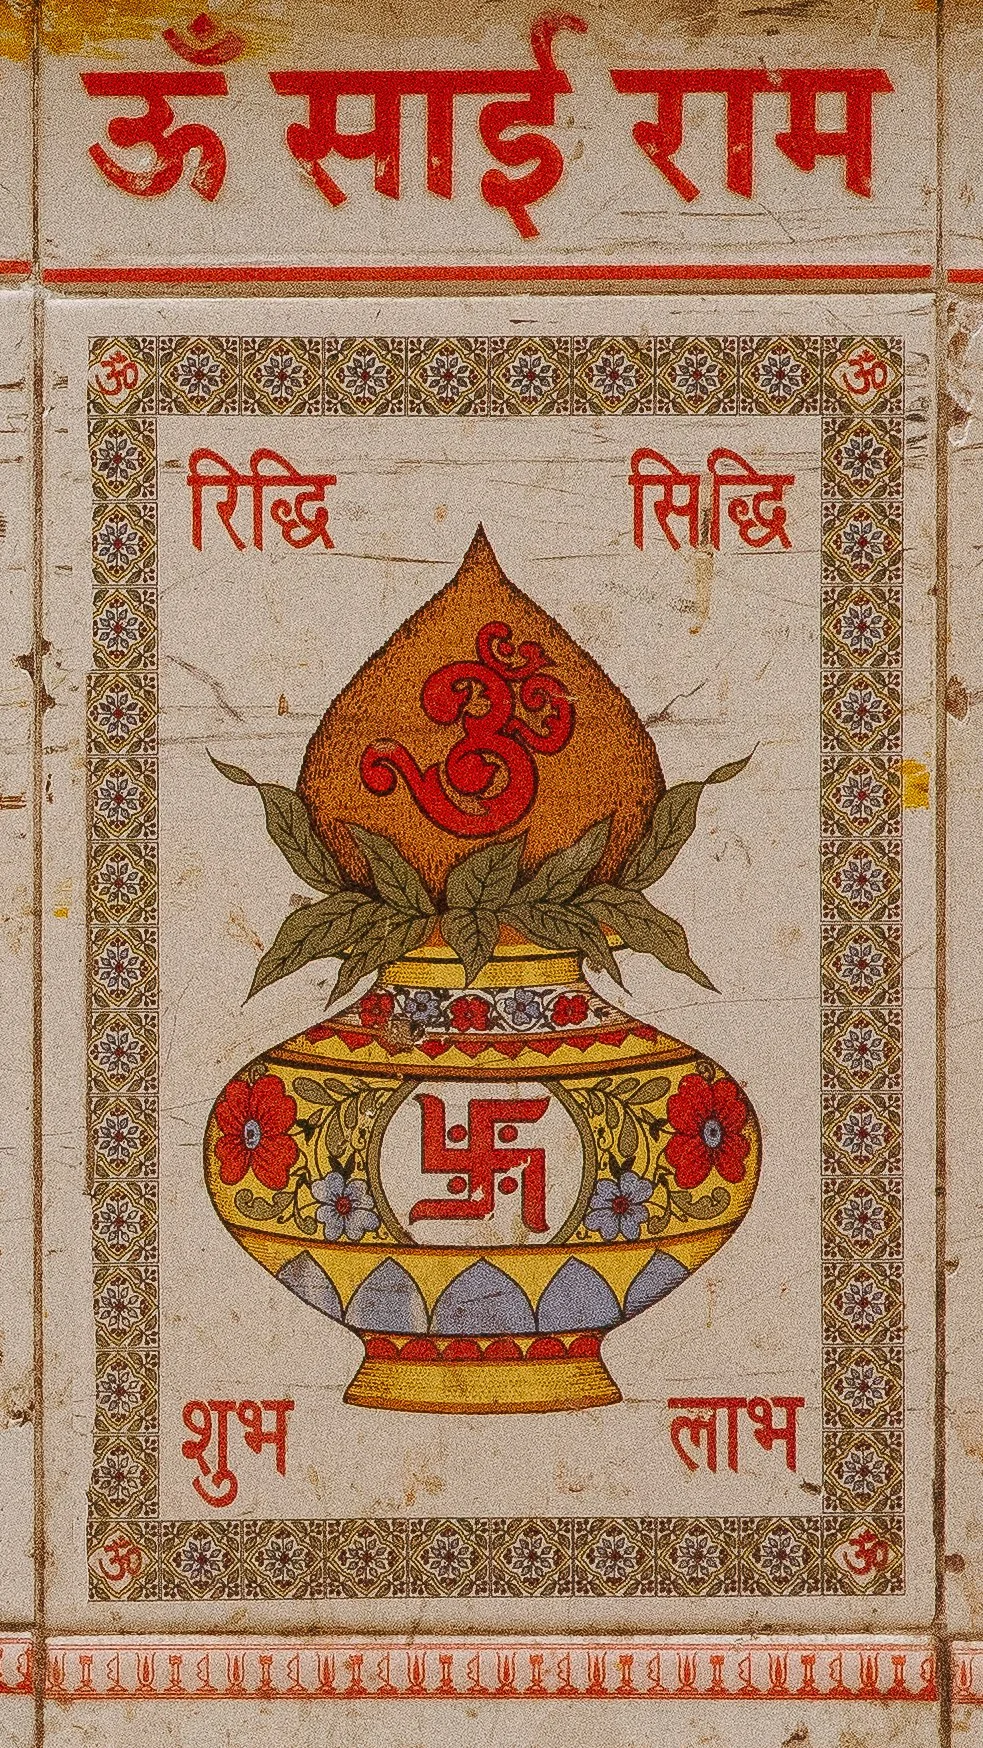 ॐ साई राम
ॐ ॐ
रिद्धि सिद्धि
ॐ
शुभ लाभ
ॐ ॐ